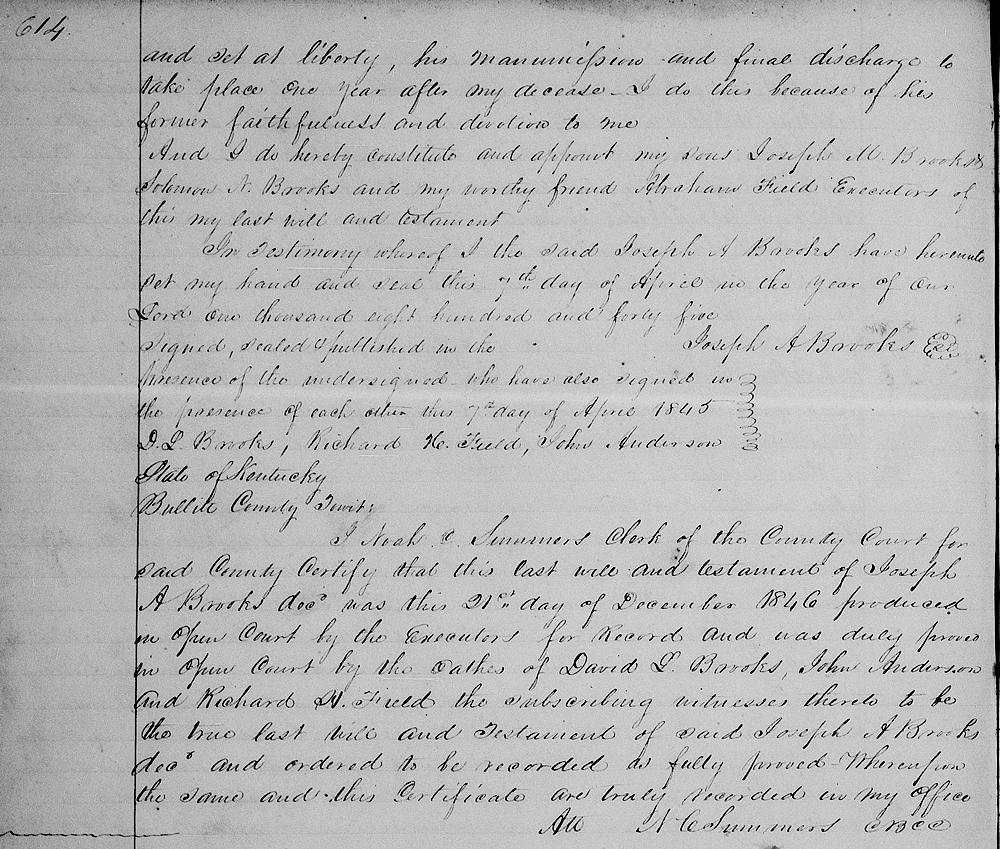 614.
and set at liberty, his manumission and final discharge to
take place one year after my decease - I do this because of his
former faithfulness and devotion to me
And I do hereby constitute and appoint my sons Joseph M. Brooks &
Solomon N. Brooks and my worthy friend Abraham Field Executors of
this my last will and testament
In Testimony whereof I the said Joseph A Brooks have hereunto
set my hand and seal this 7th day of April in the year of our
Lord one thousand eight hundred and forty five
Signed, sealed & published in the Joseph A Brooks
presence of the undersigned who have also signed in
the presence of each other this 7th day of April 1845
D. L. Brooks, Richard H. Field, John Anderson
State of Kentucky
Bullitt County Towit:
I Noah C. Summers Clerk of the County Court for
said County Certify that this last will and testament of Joseph
A Brooks decd was this 21st day of December 1846 produced
in Open Court by the Executors for Record and was duly proved
in Open Court by the oathes of David L. Brooks, John Anderson
and Richard H. Field the subscribing witnesses thereto to be
the true last will and Testament of said Joseph A Brooks
decd and ordered to be recorded as fully proved - Whereupon
the same and this Certificate are truly recorded in my office
Att N C Summers CBCC